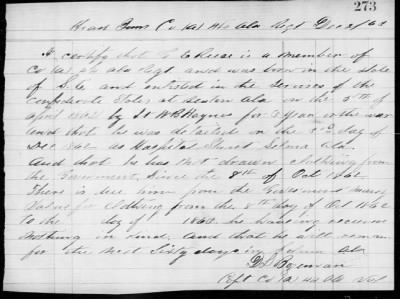 273
Head Qurs Co (A) 44 Ala Regt Dec 8/63
I certify that Reese is a member of
Co (A) 44 Ala Regt and was born in the state
of S.C and enlisted in the services of the
Confederate States at Ala on the 5th of
April 1862 by Lt W R Haynes for 3 years or the war
and that he was detailed on the day of
Dec 1862 as Hospital Selma Ala
And that he has not drawn clothing from
the Government since the 8th of Oct 1862
There is due him from the Government money
Value for clothing from the 8th day of Oct 1862
to the day of 1863 he having received
nothing in kind. and that he will remain
for the next Sixty days in Selma Ala
Bozeman
Co (A) 44 Ala Vol